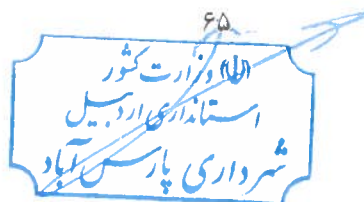 ۶۵
وزارت کشور
استانداری اردبیل
شهرداری پارس آباد